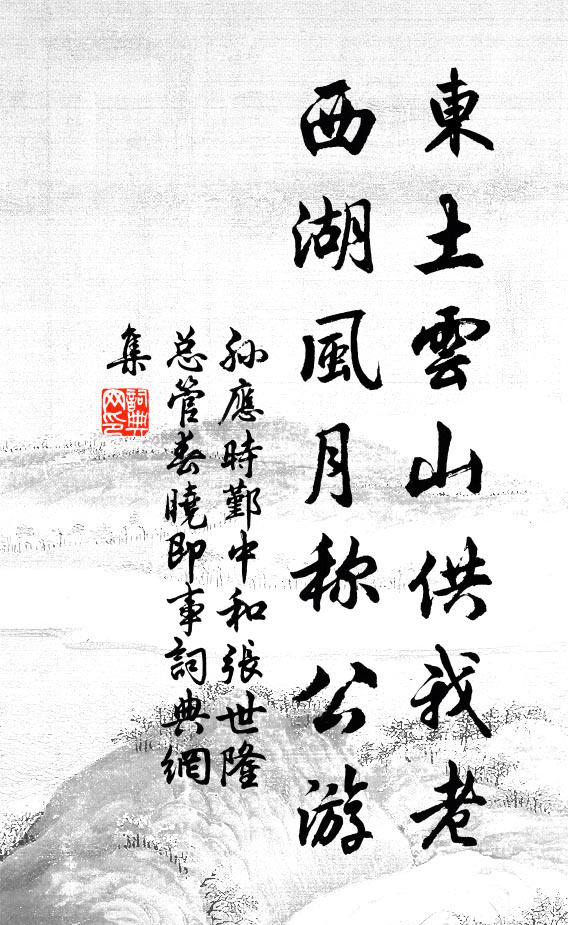 東土雲山供我老
西湖風月称公游
孙應時鄞中和張世隆
总管春曉即事詞典網
集
詞典网印